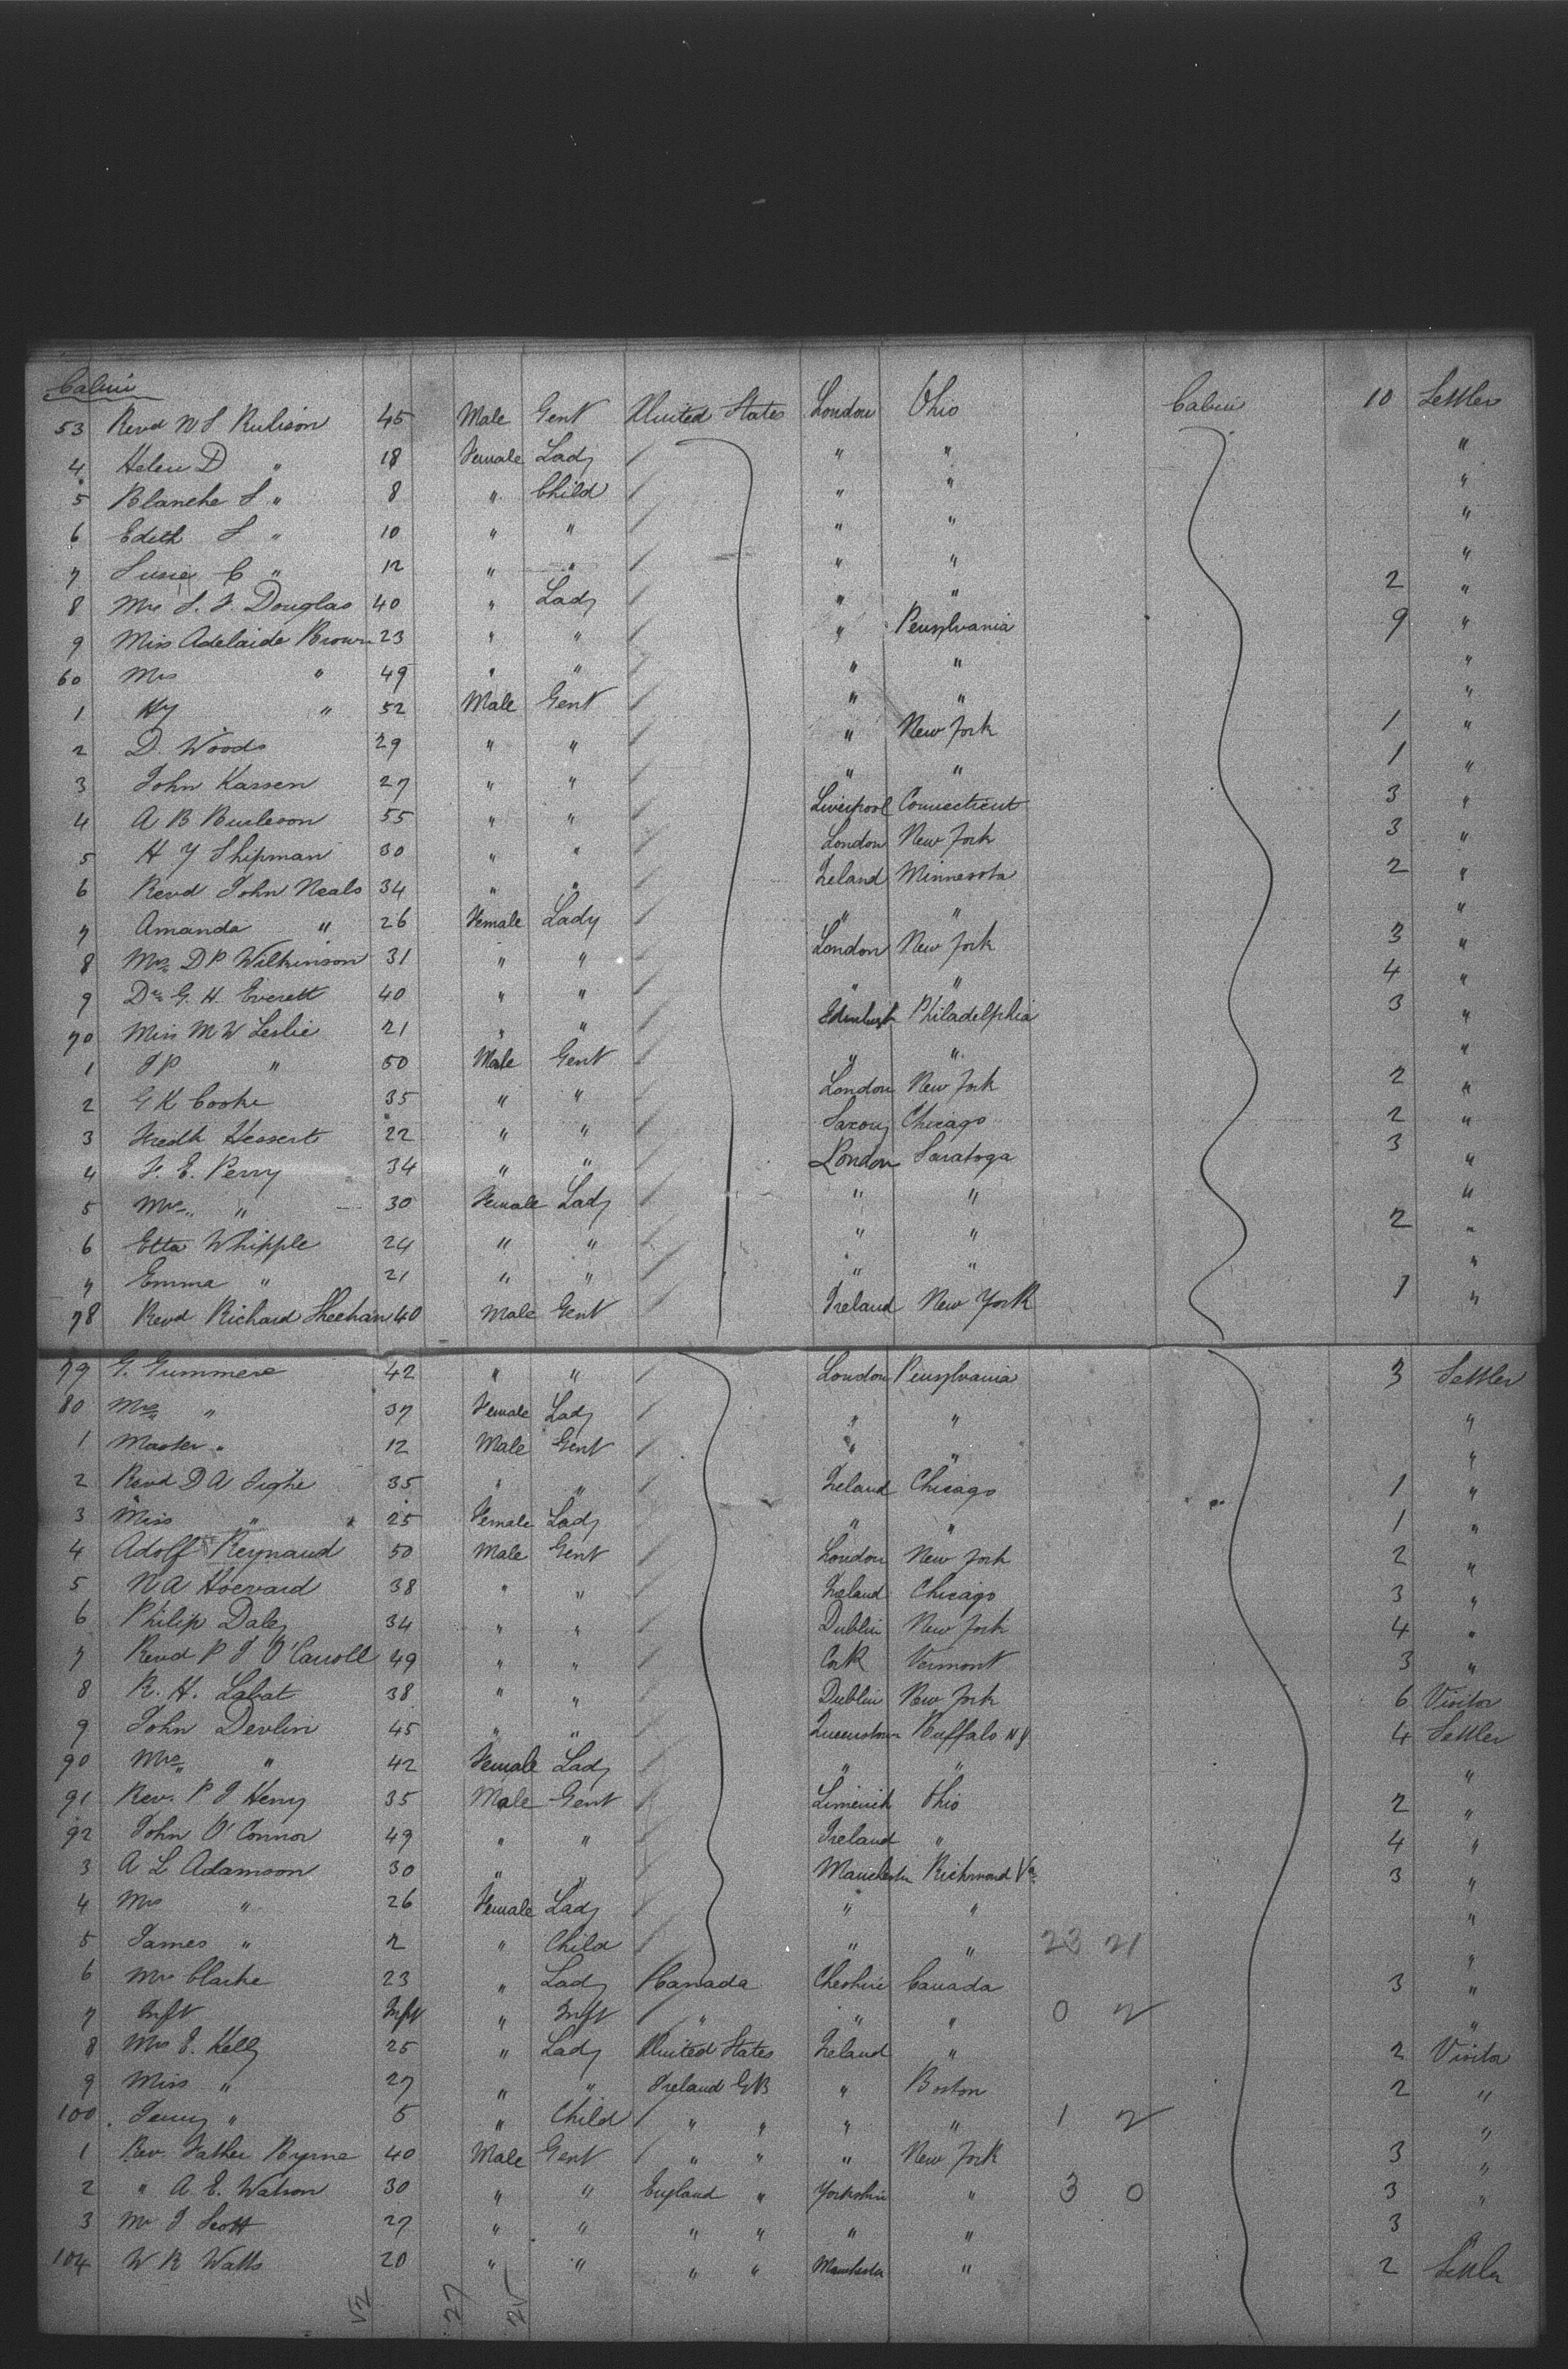 Cabin
53 Revd W S Rulison 45 Male Gent United States London Ohio Cabin 10 Settler
4 Helen D " 18 Female Lady / " " "
5 Blanche S " 8 " Child / " " "
6 Edith S " 10 " " / " " "
7 Susie C " 12 " " / " " "
8 Mrs S. F. Douglas 40 " Lady / " " 2 "
9 Miss Adelaide Brown 23 " " / " Pensylvania 9 "
60 Mrs " 49 " " / " " "
1 Hy " 52 Male Gent / " " "
2 D. Woods 29 " " / " New York 1 "
3 John Kassen 27 " " / " " 1 "
4 A B Burleson 55 " " / Liverpool Connecticut 3 "
5 H Y Shipman 30 " " / London New York 3 "
6 Revd John Neals 34 " " / Ireland Minnesota 2 "
7 Amanda " 26 Female Lady / " " "
8 Mrs D P Wilkinson 31 " " / London New York 3 "
9 Dr G. H. Everett 40 " " / " " 4 "
70 Miss M W Leslie 21 " " / Edinburgh Philadelphia 3 "
1 J P " 50 Male Gent / " " "
2 G K Cooke 35 " " / London New York 2 "
3 Fredk Hessert 22 " " / Saxony Chicago 2 "
4 F. E. Perry 34 " " / London Saratoga 3 "
5 Mrs " 30 Female Lady / " " "
6 Etta Whipple 24 " " / " " 2 "
7 Emma " 21 " " / " " "
78 Revd Richard Sheehan 40 Male Gent / Ireland New York 1 "
79 G. Gummere 42 " " / London Pensylvania 3 Settler
80 Mrs " 37 Female Lady / " " "
1 Master " 12 Male Gent / " " "
2 Revd D A Tighe 35 " " / Ireland Chicago 1 "
3 Miss " 25 Female Lady / " " 1 "
4 Adolf Reynaud 50 Male Gent / London New York 2 "
5 N A Hoevard 38 " " / Ireland Chicago 3 "
6 Philip Daley 34 " " / Dublin New York 4 "
7 Revd P J O'Carroll 49 " " / Cork Vermont 3 "
8 R. H. Labat 38 " " / Dublin New York 6 Visitor
9 John Devlin 45 " " / Queenstown Buffalo N Y 4 Settler
90 Mrs " 42 Female Lady / " " "
91 Rev. P J Henry 35 Male Gent / Limerick Ohio 2 "
92 John O'Connor 49 " " / Ireland " 4 "
3 A L Adamson 30 " " / Manchester Richmond Va 3 "
4 Mrs " 26 Female Lady / " " "
5 James " 2 " Child / " " 23 21 "
6 Mrs Clarke 23 " Lady Canada Cheshire Canada 3 "
7 Inft Inft " Inft / " " " 0 2 "
8 Mrs E. Kelly 25 " Lady United States Ireland " 2 Visitor
9 Miss " 27 " " Ireland GB " Boston 2 "
100 Jenny " 5 " Child / " " " " 1 2 "
1 Rev. Father Byrne 40 Male Gent / " " " New York 3 "
2 " A. E. Watson 30 " " England " Yorkshire " 3 0 3 "
3 Mr J Scott 27 " " " " " " 3
104 W R Watts 20 " " " " Manchester " 2 Settler
52 27 25